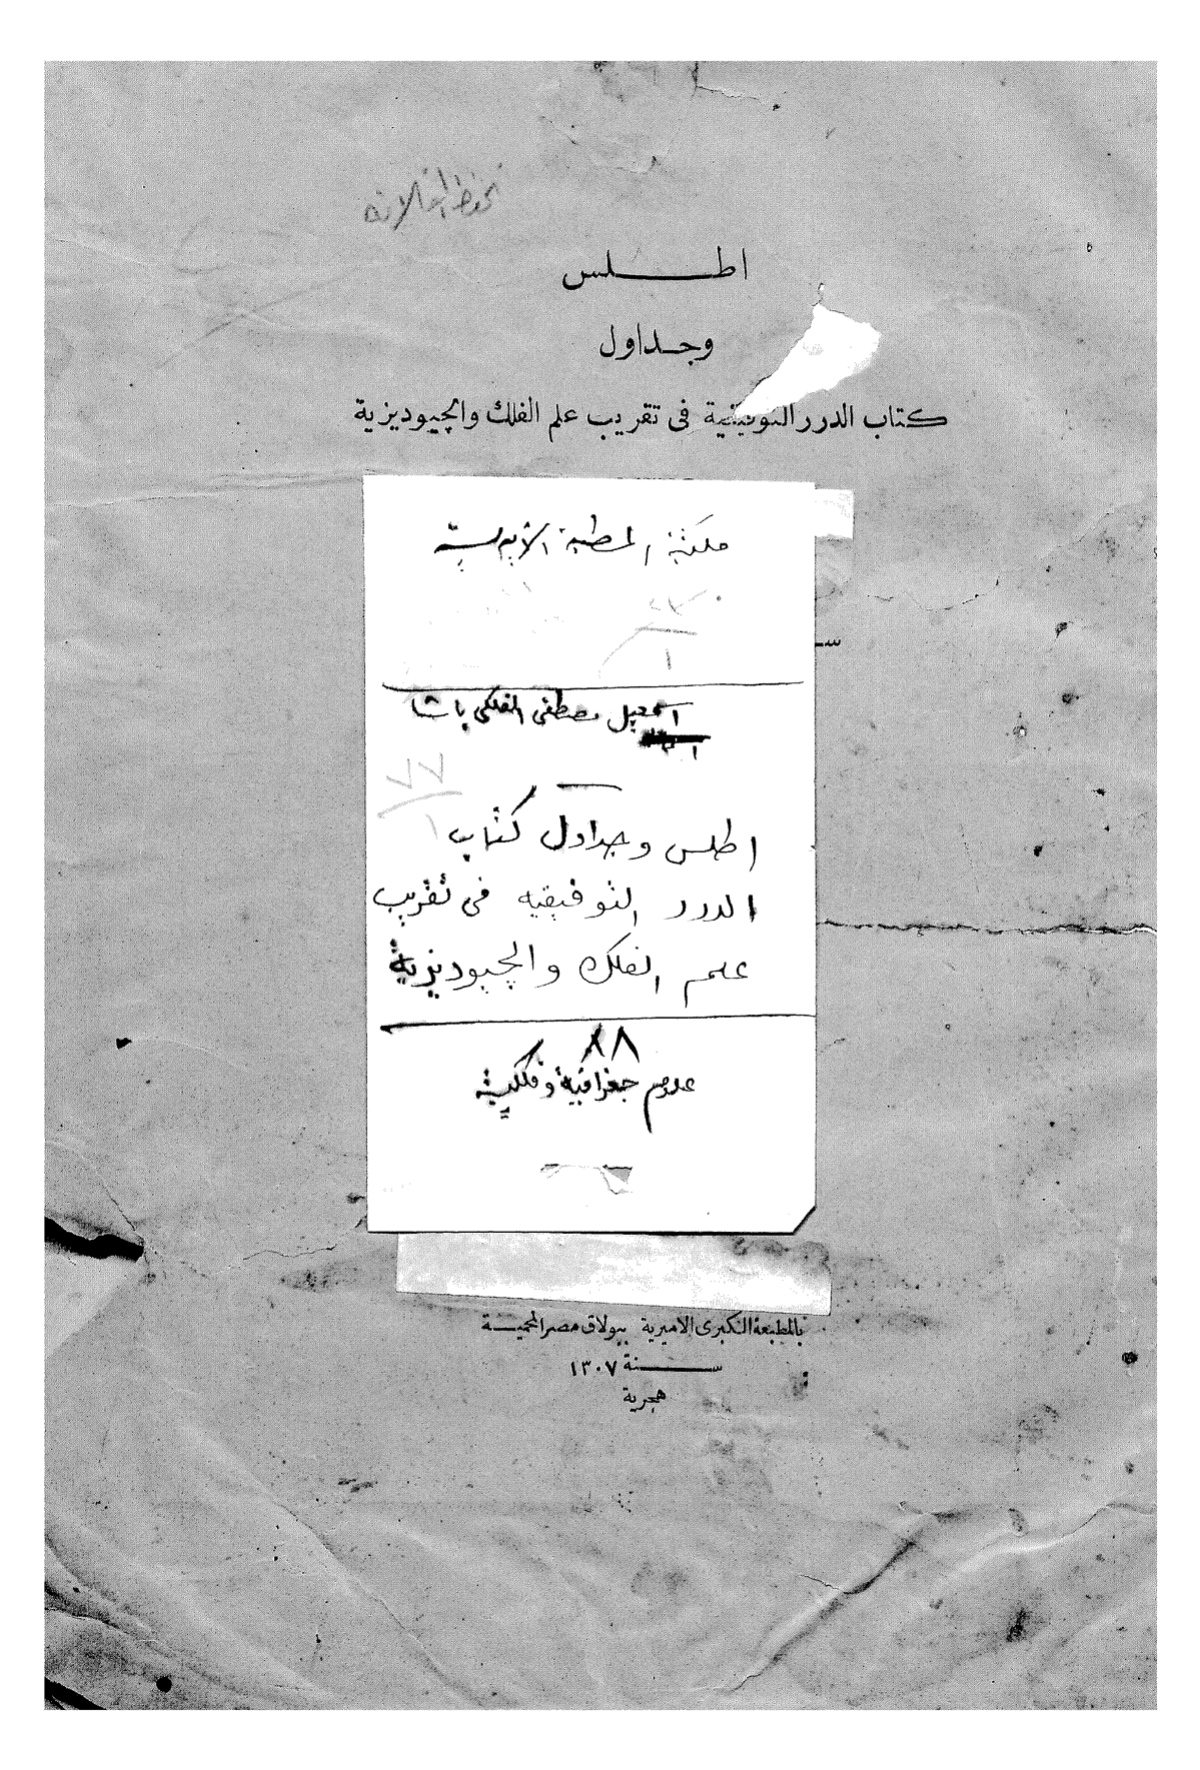 اطلس
وجداول
كتاب الدرر التوفيقية فى تقريب علم الفلك والجيوديزية
مكتبة
١
اسمعيل مصطفى الفلكى باشا
٧٧
١
اطلس وجداول كتاب
الدرر التوفيقيه فى تقريب
علم الفلك والجيوديزية
٨٨
علوم جغرافية وفلكية
بالمطبعة الكبرى الاميرية ببولاق مصر المحمية
سنة ١٣٠٧
هجرية